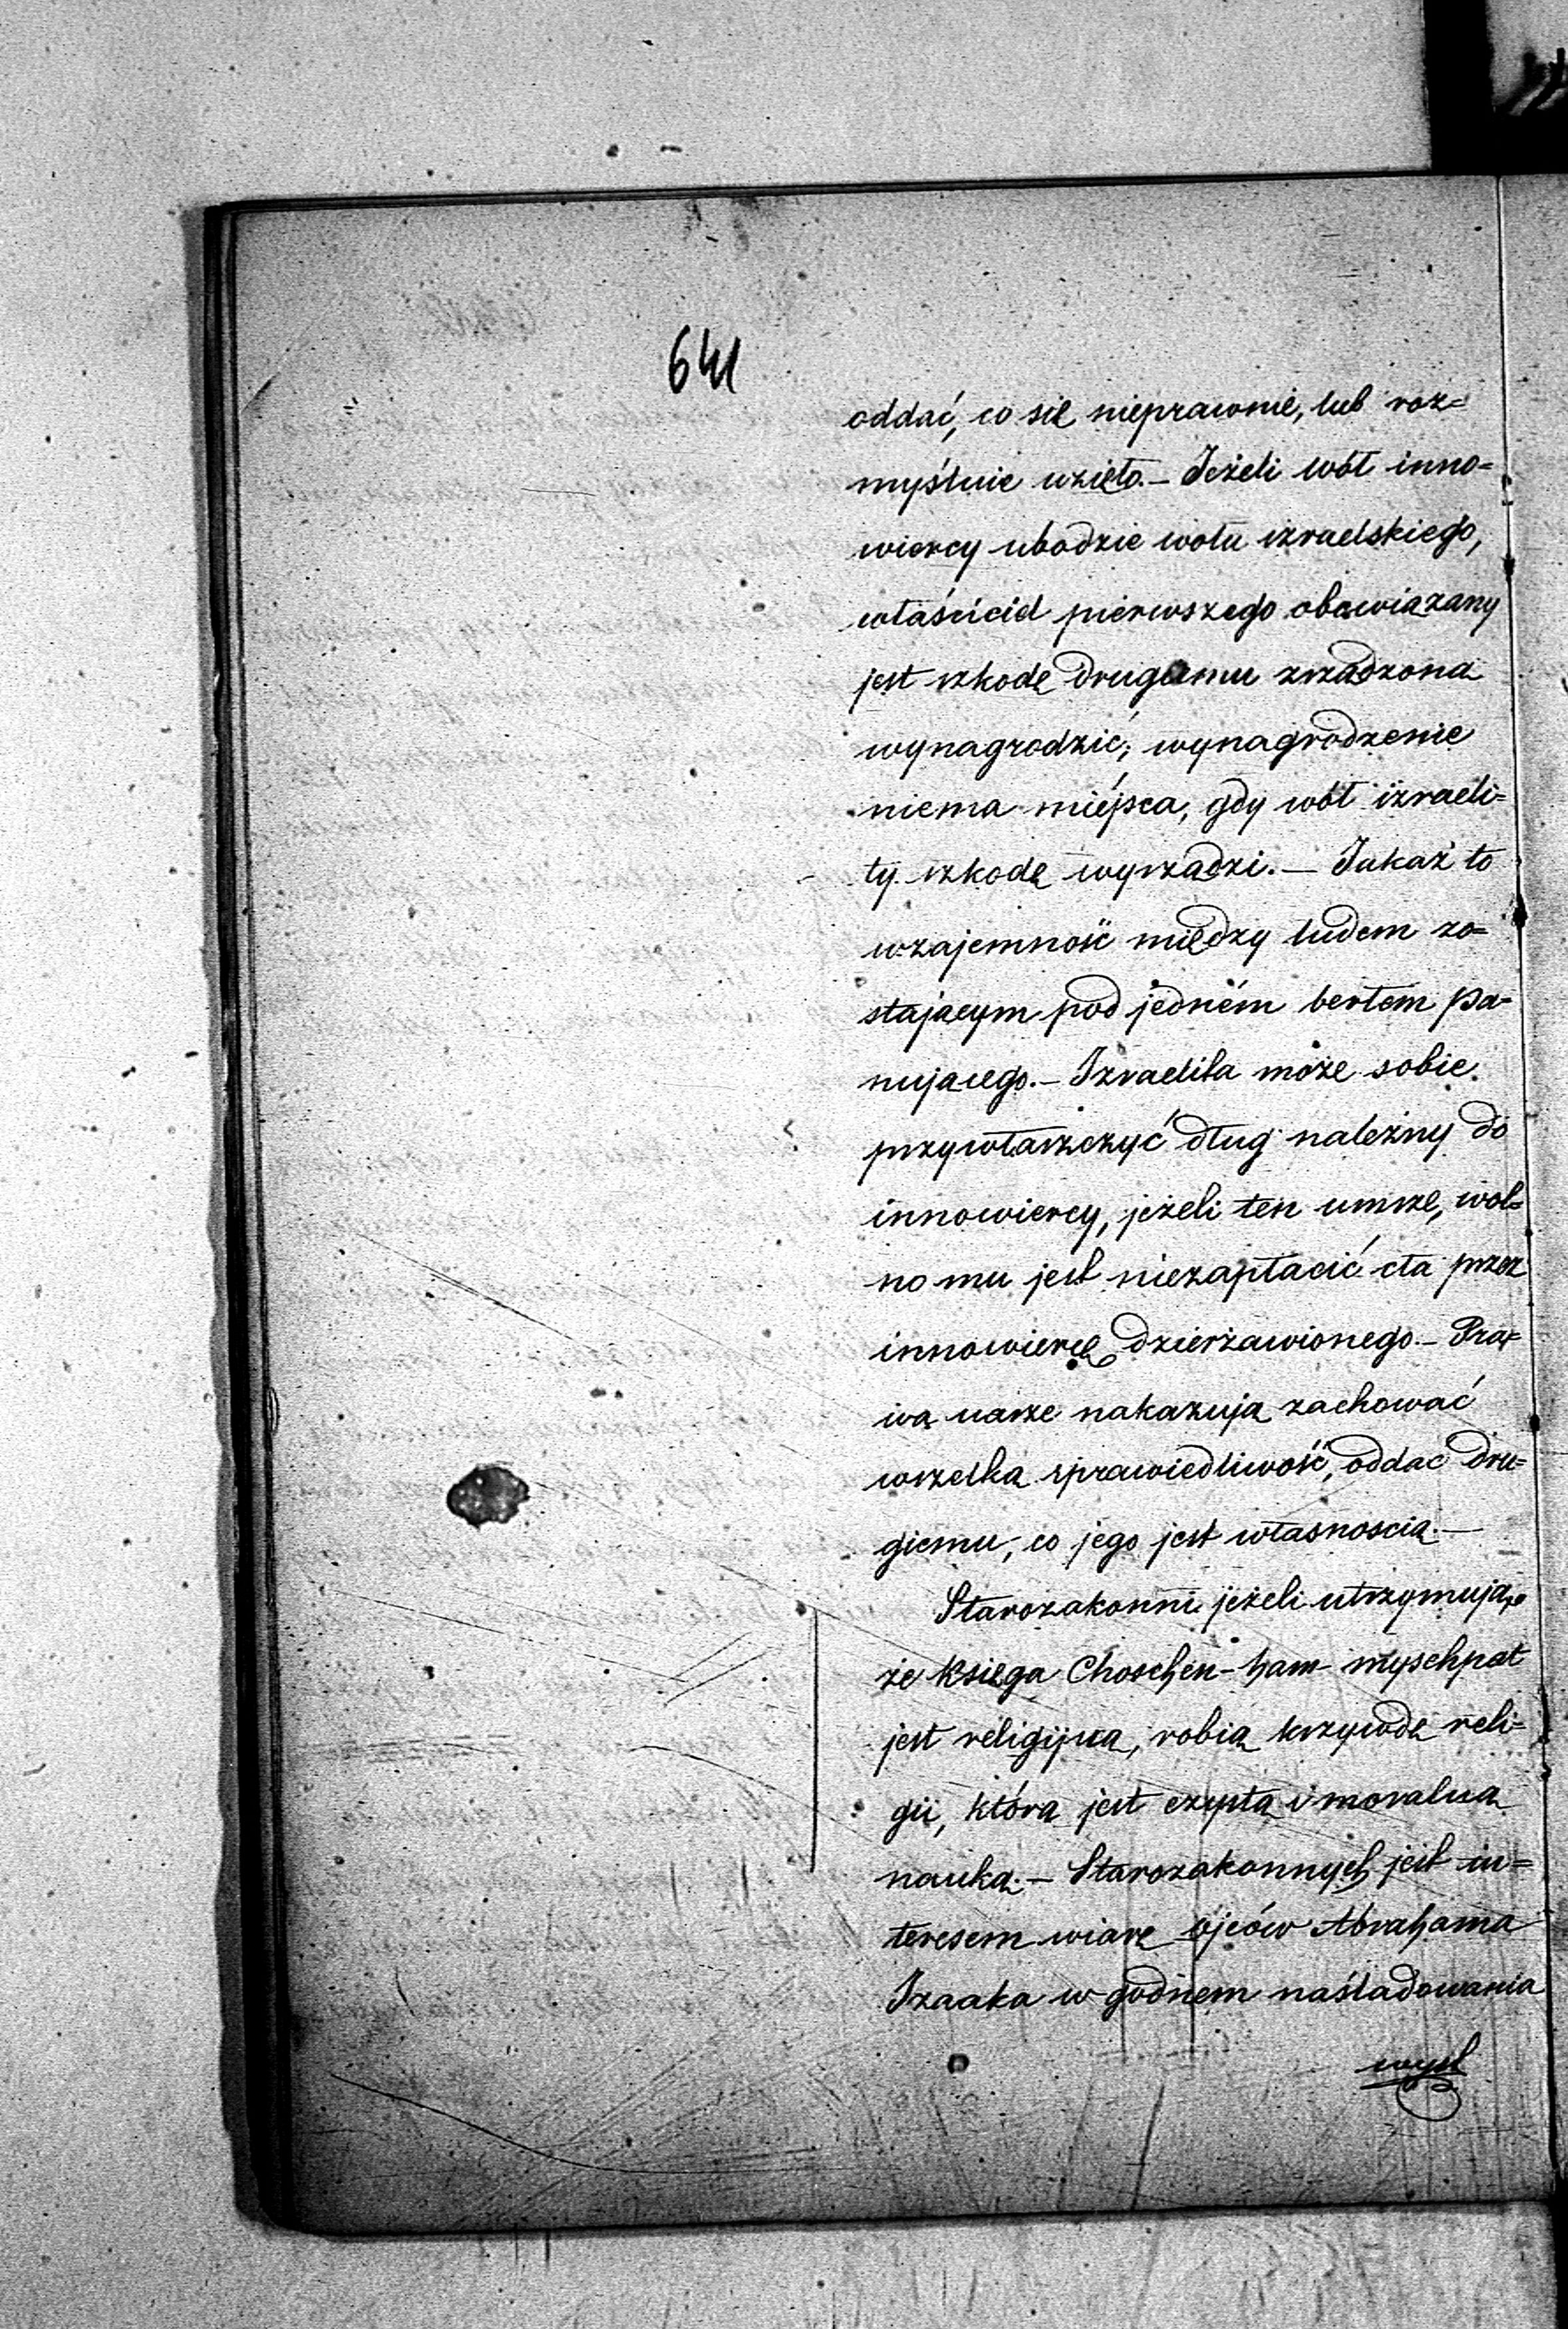 641
oddać, co się nieprawnie, lub roz=
myślnie wzięto. – Jeżeli wół inno=
wiercy ubodzie wołu izraelskiego,
właściciel pierwszego obowiązany
jest szkodę drugiemu zrządzoną
wynagrodzić; wynagrodzenie
niema miejsca, gdy wół izraeli=
ty szkodę wyrządzi. – Jakaż to
wzajemność między ludem zo=
stającym pod jedném berłem pa=
nującego. – Izraelita może sobie
przywłaszczyć dług należny do
innowiercy, jeżeli ten umrze, wol=
no mu jest niezapłacić cła przez
innowiercę dzierżawionego. – Pra=
wa nasze nakazują zachować
wszelką sprawiedliwość, oddać dru=
giemu, co jego jest własnoscią. –
Starozakonni jeżeli utrzymują,
że księga Choschen-ham-myschpat
jest religijną, robią krzywdę reli=
gii, która jest czystą i moralną
nauką. – Starozakonnych jest in=
teresem wiarę ojców Abrahama
Izaaka w godnem naśladowania